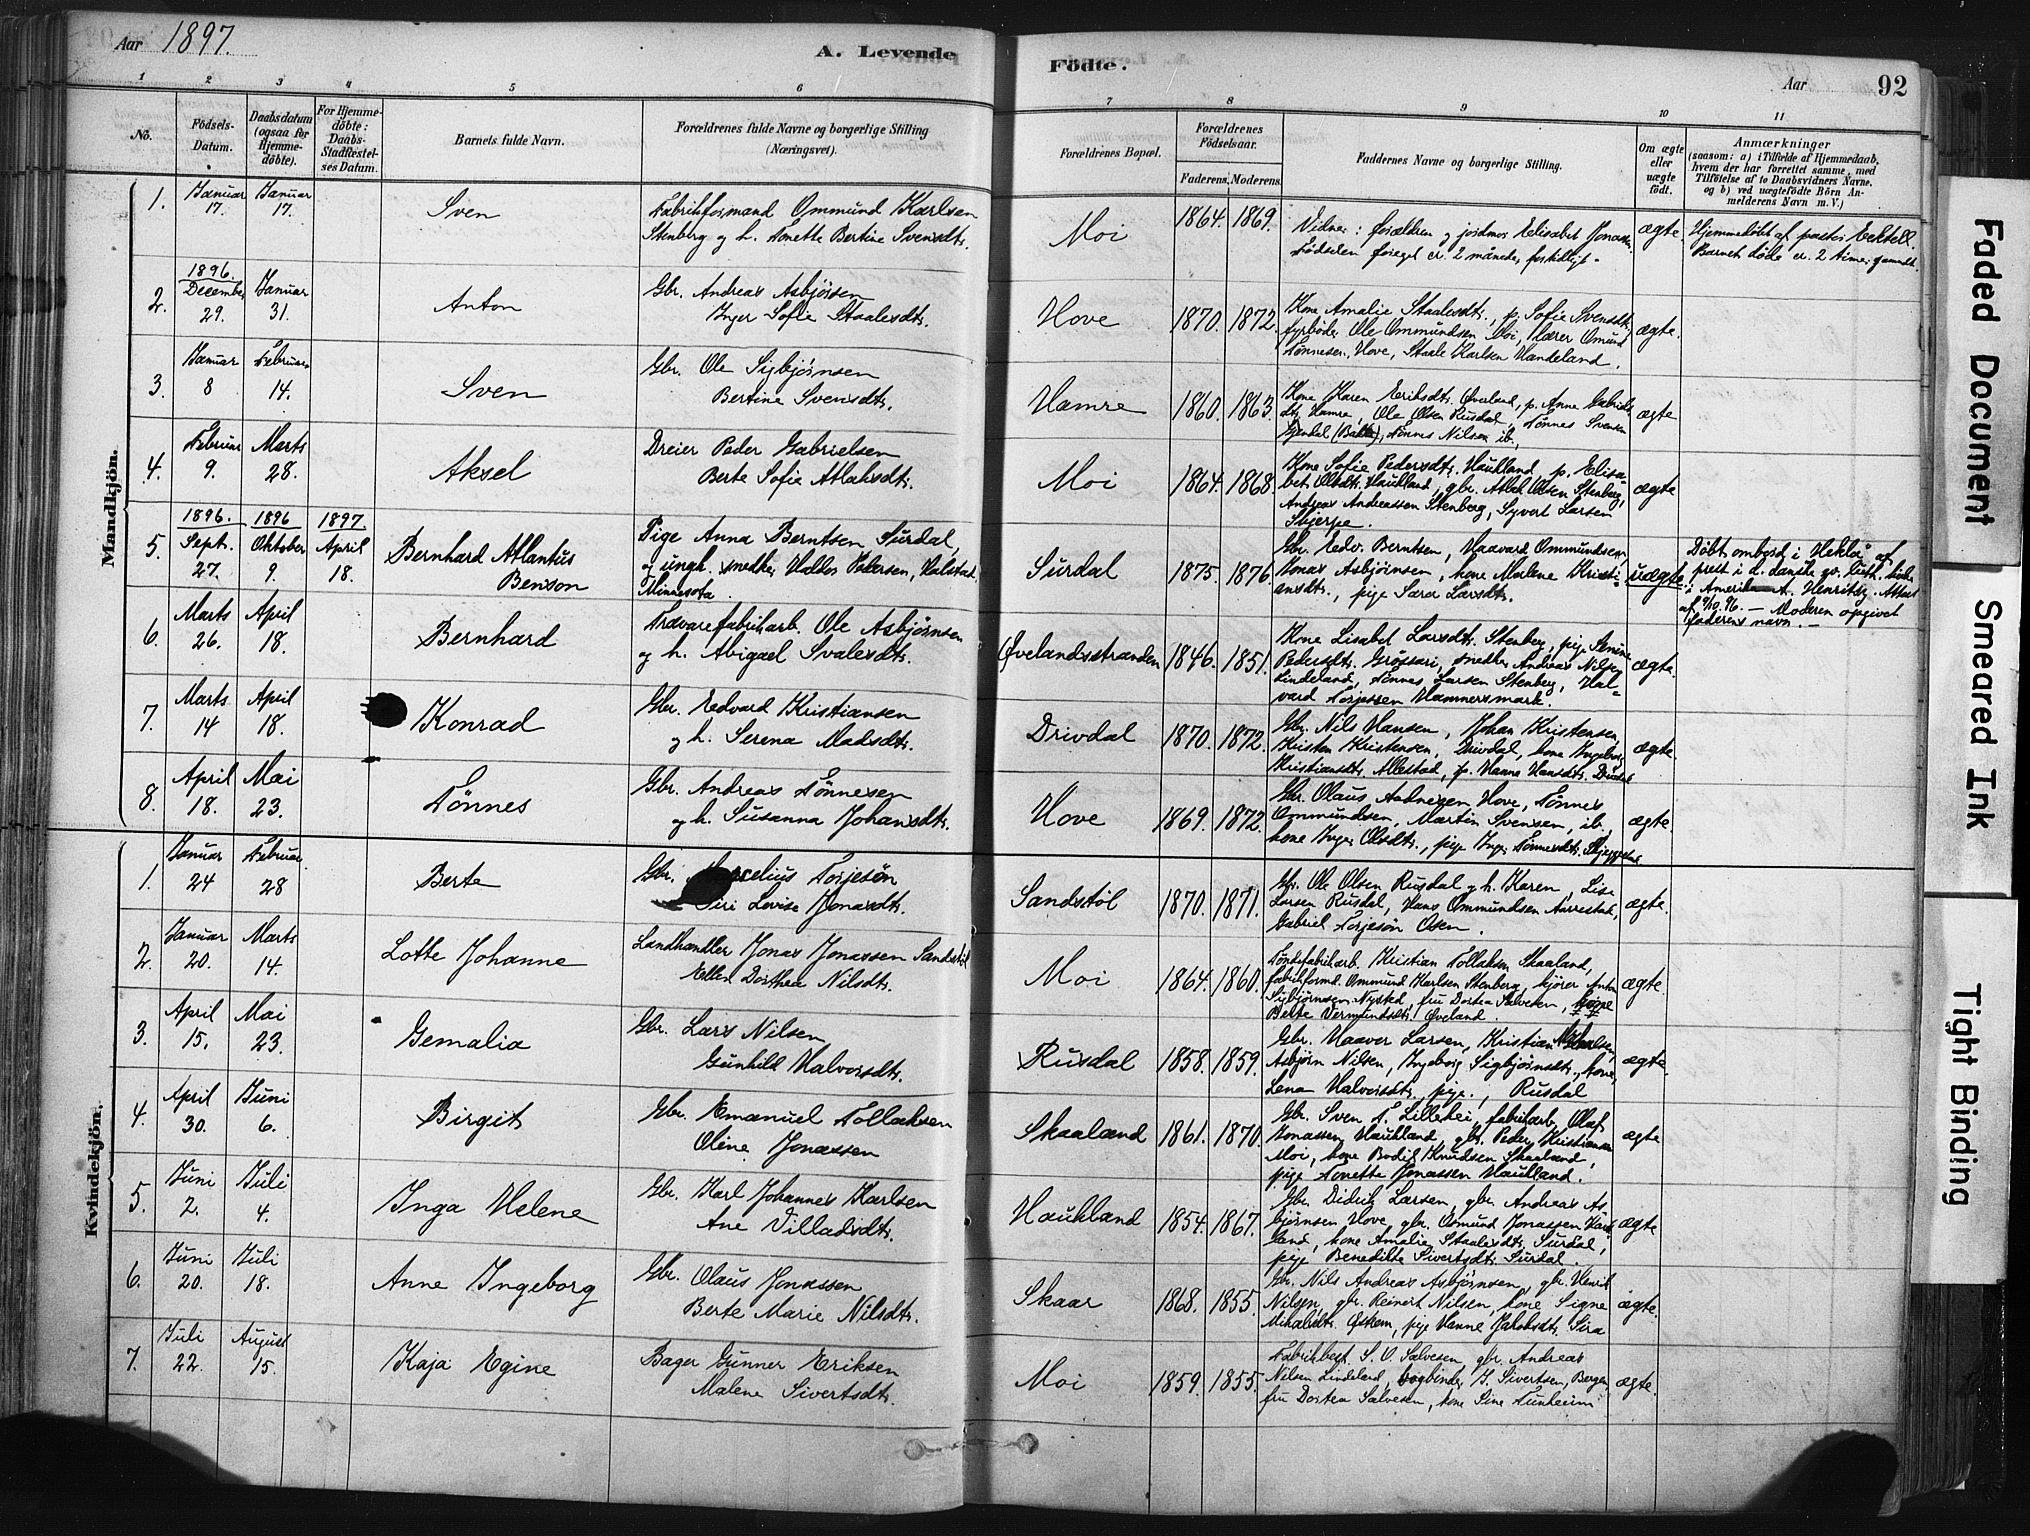 Aar 1897.
A. Levende
Födte.
Aar
92
1 2 3 4 5 6 7 8 9 10 11
Nö.
Födsels-Datum.
Daabsdatum (ogsaa for Hjemmedöbte).
For Hjemmedöbte: Daabs-Stadfæstelses Datum.
Barnets fulde Navn.
Forældrenes fulde Navne og borgerlige Stilling (Næringsvei).
Forældrenes Bopæl.
Forældrenes Födselsaar.
Faderens. Moderens.
Faddernes Navne og borgerlige Stilling.
Om ægte eller uægte födt.
Anmærkninger
(saasom: a) i Tilfælde af Hjemmedaab, hvem der har forrettet samme, med Tilföielse af to Daabsvidners Navne, og b) ved uægtefödte Börn Anmelderens Navn m. V.)
Mandkjön.
1. Januar 17. Januar 17. Sven
Fabrikformand Ommund Karlsen
Stenberg og h. Tonette Bertine Svensdt.
Moi 1864. 1869.
Vidner: forældren og jordmor Elisabet
Fødselen foregik cr. 2 måneder for tidligt.
ægte
Hjemmedøbt af pastor
Barnet døde cr. 2 timer gammelt.
2. 1896. December 29. Januar 31. Anton
Gbr. Andreas Asbjørsen
Inger Sofie Staalesdt.
Hove 1870. 1872.
Kone Amalie Staalesdt., p. Sofie Svensdt.
fyrbøder Ole Ommundsen Moi, lærer Omund
Tønnesen, Hove, Staale Karlsen Handeland.
ægte.
3. Januar 8 Februar 14. Sven
Gbr. Ole Sigbjørnsen
Bertine Svensdt.
Hamre 1860. 1863.
Kone Karen Eriksdt. Øveland, p. Anne Gabriels
dt. Hamre, Ole Olsen Rusdal, Tønnes Svensen
Tønnes Nilsen ib.
ægte
4. Februar 9. Marts 28. Aksel
Dreier Peder Gabrielsen
Berte Sofie Atlaksdt.
Moi 1864. 1868.
Kone Sofie Pedersdt. Haukland, p. Elisa-
bet Olsdt. Haukland, gbr. Atlak Olsen Stenberg,
Andreas Andreassen Stenberg, Syvert Larsen
Skjerpe.
ægte
5. 1896. Sept. 27. 1896 Oktober 9. 1897 April 18. Bernhard Atlantus
Benson
Pige Anna Berntsen Surdal,
og ungk. snedker Haldor Pedersen, Halstad
Minnesota.
Surdal 1875. 1876.
Gbr. Edv. Berntsen, Haavard Ommundsen,
Jonas Asbjørnsen, kone Malene Kristi-
ansdt., pige Sara Larsdt.
uægte
Døbt ombord i "Hekla" af
prest i d. danske ev. luth. kirke
i Amerika A. Henriksen. Attest
af 9/10 96. — Moderen opgivet
faderens navn. —
6. Marts 26. April 18. Bernhard
Trævarefabrikarb. Ole Asbjørnsen
og h. Abigael Svalesdt.
Øvelandsstranden 1846. 1851.
Kone Lisabet Larsdt. Stenberg, pige Stenine
Pedersdt. Grøssari, snedker Andreas Nilsen
Lindeland, Tønnes Larsen Stenberg, Hal-
vard Torjessen Hammersmark.
ægte.
7. Marts 14 April 18. Konrad
Gbr. Edvard Kristiansen
og h. Serena Madsdt.
Drivdal 1870. 1872.
Gbr. Nils Hansen, Johan Kristensen,
Kristen Kristensen, Drivdal, kone Ingeborg
Kristiansdt. Allestad, p. Hanne Hansdt. Drivdal
ægte
8. April 18. Mai 23. Tønnes
Gbr. Andreas Tønnesen
og h. Susanna Johansdt.
Hove 1869. 1872.
Gbr. Olaus Aadnesen Hove, Tønnes
Ommundsen, Martin Svensen, ib.,
kone Inger Olsdt., pige Inger Tønnesdt.
ægte.
Kvindekjön.
1. Januar 24 Februar 28 Berte
Gbr. Torjesøn
Siri Lovise Jonasdt.
Sandstøl 1870. 1871.
Gbr. Ole Olsen Rusdal og h. Karen, Lise
Larsen Rusdal, Hans Ommundsen Aarrestad,
Gabriel Torjesøn Osen.
ægte.
2. Januar 20. Marts 14. Lotte Johanne
Landhandler Jonas Jonassen Sandstøl
Ellen Dorthea Nilsdt.
Moi 1864. 1860.
Tøndefabrikarb. Kristian Tollaksen Skaaland,
fabrikformd. Ommund Karlsen Stenberg, kjører Anton
Sigbjørnsen Nysted, fru Dortea Salvesen, kone
Berte Vermundsdt. Øveland.
ægte.
3. April 15. Mai 23. Gemalia
Gbr. Lars Nilsen
Gunhild Halvorsdt.
Rusdal 1858. 1859.
Gbr. Haaver Larsen, Kristian
Asbjørn Nilsen, Ingeborg Sigbjørnsdt., kone,
Lena Halvorsdt., pige., Rusdal
ægte.
4. April 30. Juni 6. Birgit
Gbr. Emanuel Tollaksen
Oline Jonassen
Skaaland 1861. 1870.
Gbr. Sven T. Lillehei, fabrikarb. Olaf
Jonassen Haukland, gbr. Peder Kristiansen
Moi, kone Bodil Knudsen Skaaland,
pige Tonette Jonassen Haukland.
ægte
5. Juni 2. Juli 4. Inga Helene
Gbr. Karl Johannes Karlsen
Ane Villadsdt.
Haukland 1854. 1867.
Gbr. Didrik Larsen, gbr. Andreas As-
bjørnsen Hove, gbr. Osmund Jonassen Hauk-
land, kone Amalie Staalesdt. Surdal,
pige Benedikte Sivertsdt. Surdal.
ægte
6. Juni 20. Juli 18. Anne Ingeborg
Gbr. Olaus Jonassen
Berte Marie Nilsdt.
Skaar 1868. 1855.
Gbr. Nils Andreas Asbjørnsen, gbr. Henrik
Nilsen, gbr. Reinert Nilsen, kone Signe
Mikalsdt. Østrem, pige Hanne Jakobsdt. Sira
ægte.
7. Juli 22. August 15. Kaja Egine
Bager Gunner Eriksen
Malene Sivertsdt.
Moi 1859. 1855.
Fabrikbest. S. O. Salvesen, gbr. Andreas
Nilsen Lindeland, bogbinder J. Sivertsen, Bergen,
fru Dortea Salvesen, kone Sine Tunheim
ægte.
Faded Document
Smeared Ink
Tight Binding